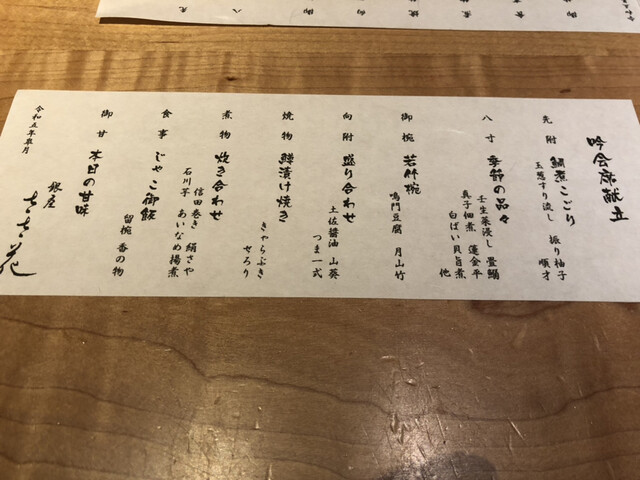 吟会席献立
先附 鯛煮こごり
玉葱すり流し 振り柚子
順才
八寸 季節の品々
壬生菜浸し 畳鰯
真子佃煮 蓮金平
白ばい貝旨煮
他
御椀 若竹椀
鳴門豆腐 月山竹
向附 盛り合わせ
土佐醤油 山葵
つま一式
焼物 鰆漬け焼き
きゃらぶき
せろり
煮物 炊き合わせ
信田巻き 絹さや
石川芋 あいなめ揚煮
食事 じゃこ御飯
留椀 香の物
御甘 本日の甘味
令和五年皐月
銀座